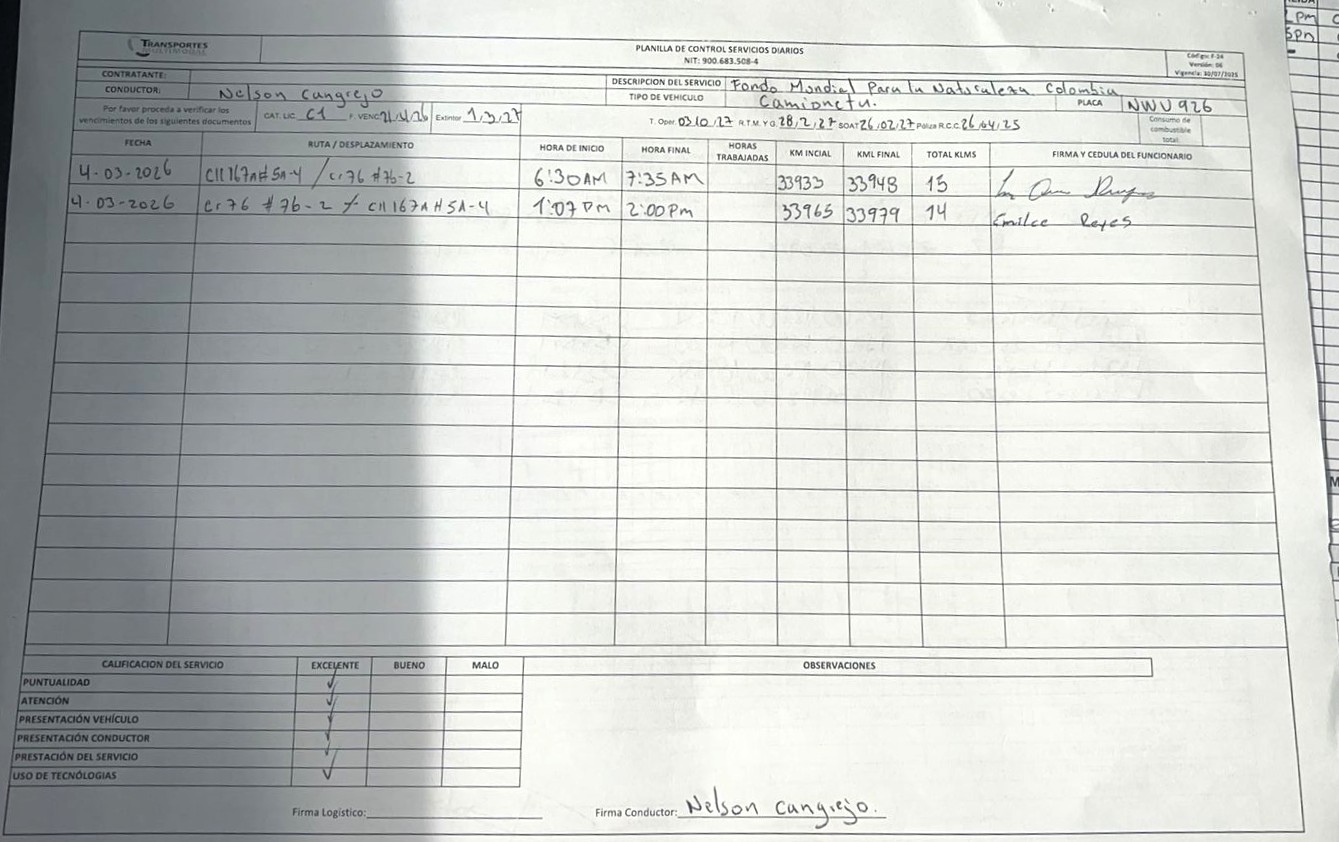 TRANSPORTES
PLANILLA DE CONTROL SERVICIOS DIARIOS
NIT: 900.683.508-4
Código: F-24
Versión: 06
Vigencia: 30/07/2025
CONTRATANTE:
CONDUCTOR: Nelson Cangrejo
DESCRIPCION DEL SERVICIO Fondo Mondial Para la Naturaleza Colombia
TIPO DE VEHICULO Camioneta. PLACA NWU 926
Por favor proceda a verificar los vencimientos de los siguientes documentos
CAT. LIC C1 F. VENC 21/4/26 Extintor 1,3,27
T. Oper. 03,10,27 R.T.M. Y G. 28,2,27 SOAT 26,02,27 Poliza R.C.C 26,04,25
Consumo de combustible total:
FECHA RUTA / DESPLAZAMIENTO HORA DE INICIO HORA FINAL HORAS TRABAJADAS KM INCIAL KML FINAL TOTAL KLMS FIRMA Y CEDULA DEL FUNCIONARIO
4-03-2026 Cll 167A # 5A-4 / Cr 76 # 7b-2 6:30 AM 7:35 AM 33933 33948 15
4-03-2026 Cr 76 # 7b-2 / Cll 167A # 5A-4 1:07 Pm 2:00 Pm 33965 33979 14 Emilce Reyes
CALIFICACION DEL SERVICIO EXCELENTE BUENO MALO OBSERVACIONES
PUNTUALIDAD ✓
ATENCIÓN ✓
PRESENTACIÓN VEHÍCULO ✓
PRESENTACIÓN CONDUCTOR ✓
PRESTACIÓN DEL SERVICIO ✓
USO DE TECNÓLOGIAS ✓
Firma Logístico: Firma Conductor: Nelson Cangrejo.